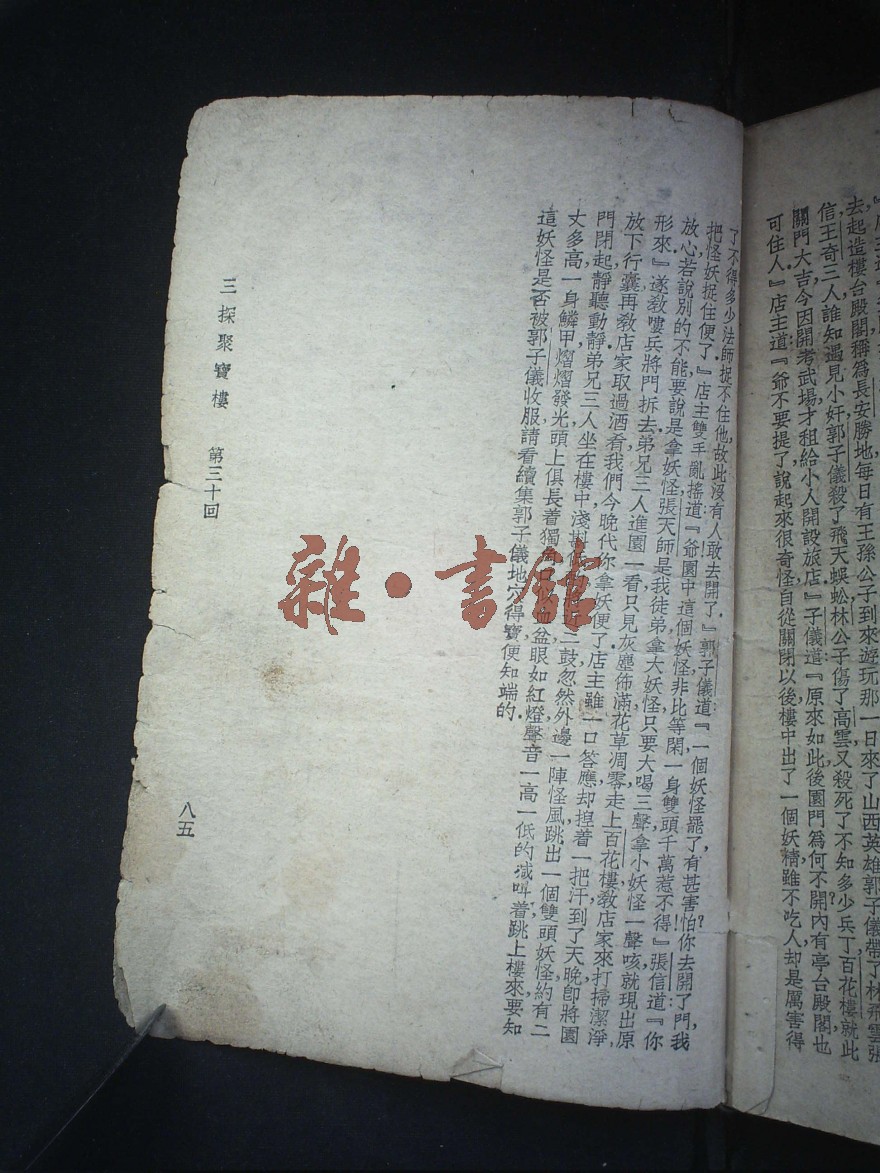 去起造樓台殿閣稱爲長安勝地每日有王孫公子到來遊玩那一日來了山西英雄郭子儀帶了林飛雲張
信王奇三人誰知遇見小奸郭子儀殺了飛天蜈蚣林公子傷了高雲又殺死了不知多少兵丁百花樓就此
關門大吉今因開考武場才租給小人開設旅店』子儀道『原來如此後園門爲何不開內有亭台殿閣也
可住人』店主道『爺不要提了說起來很奇怪自從關閉以後樓中出了一個妖精雖不吃人却是厲害得
了不得多少法師捉不住他故此沒有人敢去開了』郭子儀道『一個妖怪罷了有甚害怕你去開了門我
把怪妖捉住便了』店主雙手亂搖道『爺園中這個妖怪非比等閑一身雙頭千萬惹不得』張信道『你
放心若說別的不能要說是拿妖怪張天師是我徒弟拿大妖怪只要大喝三聲拿小妖怪一聲咳就現出原
形來』遂敎嘍兵將門拆去弟兄三人進園一看只見灰塵佈滿花草凋零走上百花樓敎店家來打掃潔淨
放下行囊再敎店家取過酒看我們今晚代你拿妖便了店主雖一口答應却揑着一把汗到了天晚卽將園
門閉起靜聽動靜弟兄三人坐在樓中淺斟 二鼓忽然外邊一陣怪風跳出一個雙頭妖怪約有二
丈多高一身鱗甲熠熠發光頭上俱長着獨角 血盆眼如紅燈聲音一高一低的減叫着跳上樓來要知
這妖怪是否被郭子儀收服請看續集郭子儀地穴得寶便知端的
三探聚寶樓 第三十回
八五
雜·書館